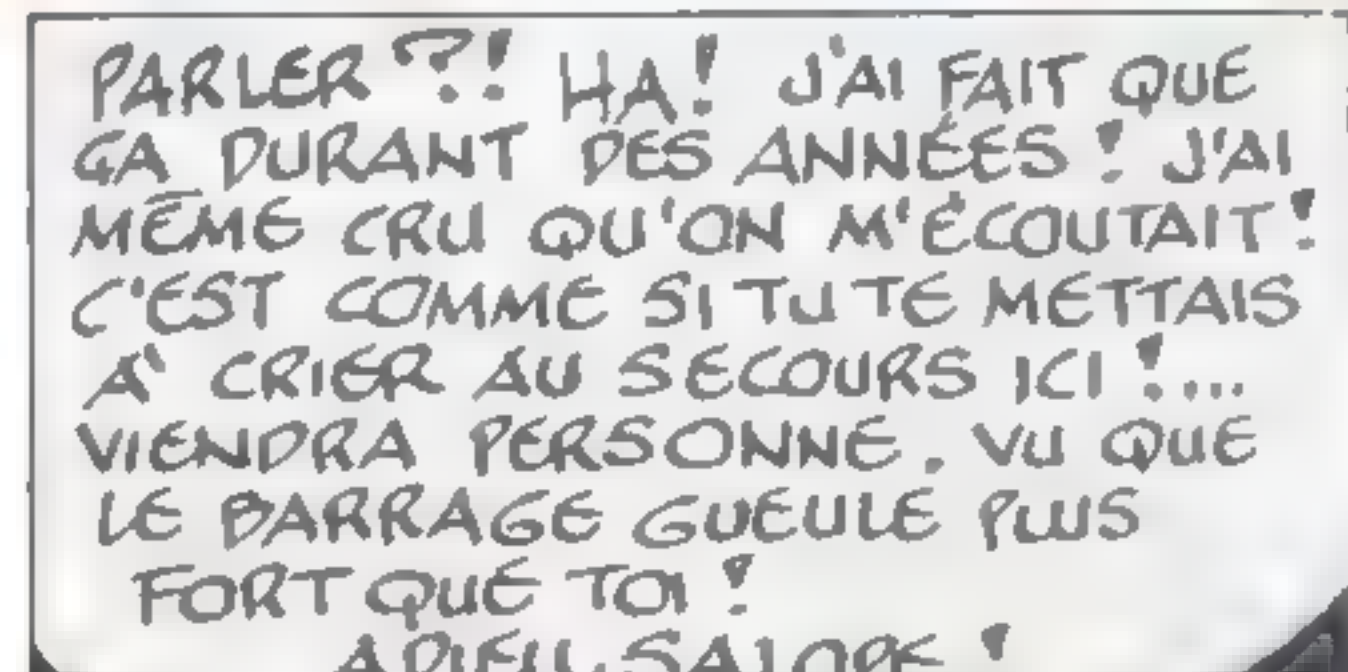 PARLER ?! HA ! J'AI FAIT QUE
ÇA DURANT DES ANNÉES ! J'AI
MÊME CRU QU'ON M'ÉCOUTAIT !
C'EST COMME SI TU TE METTAIS
À CRIER AU SECOURS ICI !...
VIENDRA PERSONNE. VU QUE
LE BARRAGE GUEULE PLUS
FORT QUE TOI !
ADIEU, SALOPE !